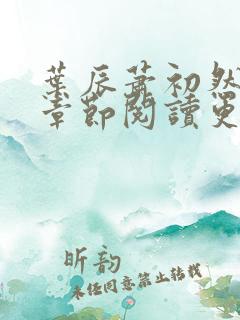 葉辰蕭初然
章節閱讀更
昕韵
未经同意禁止转载